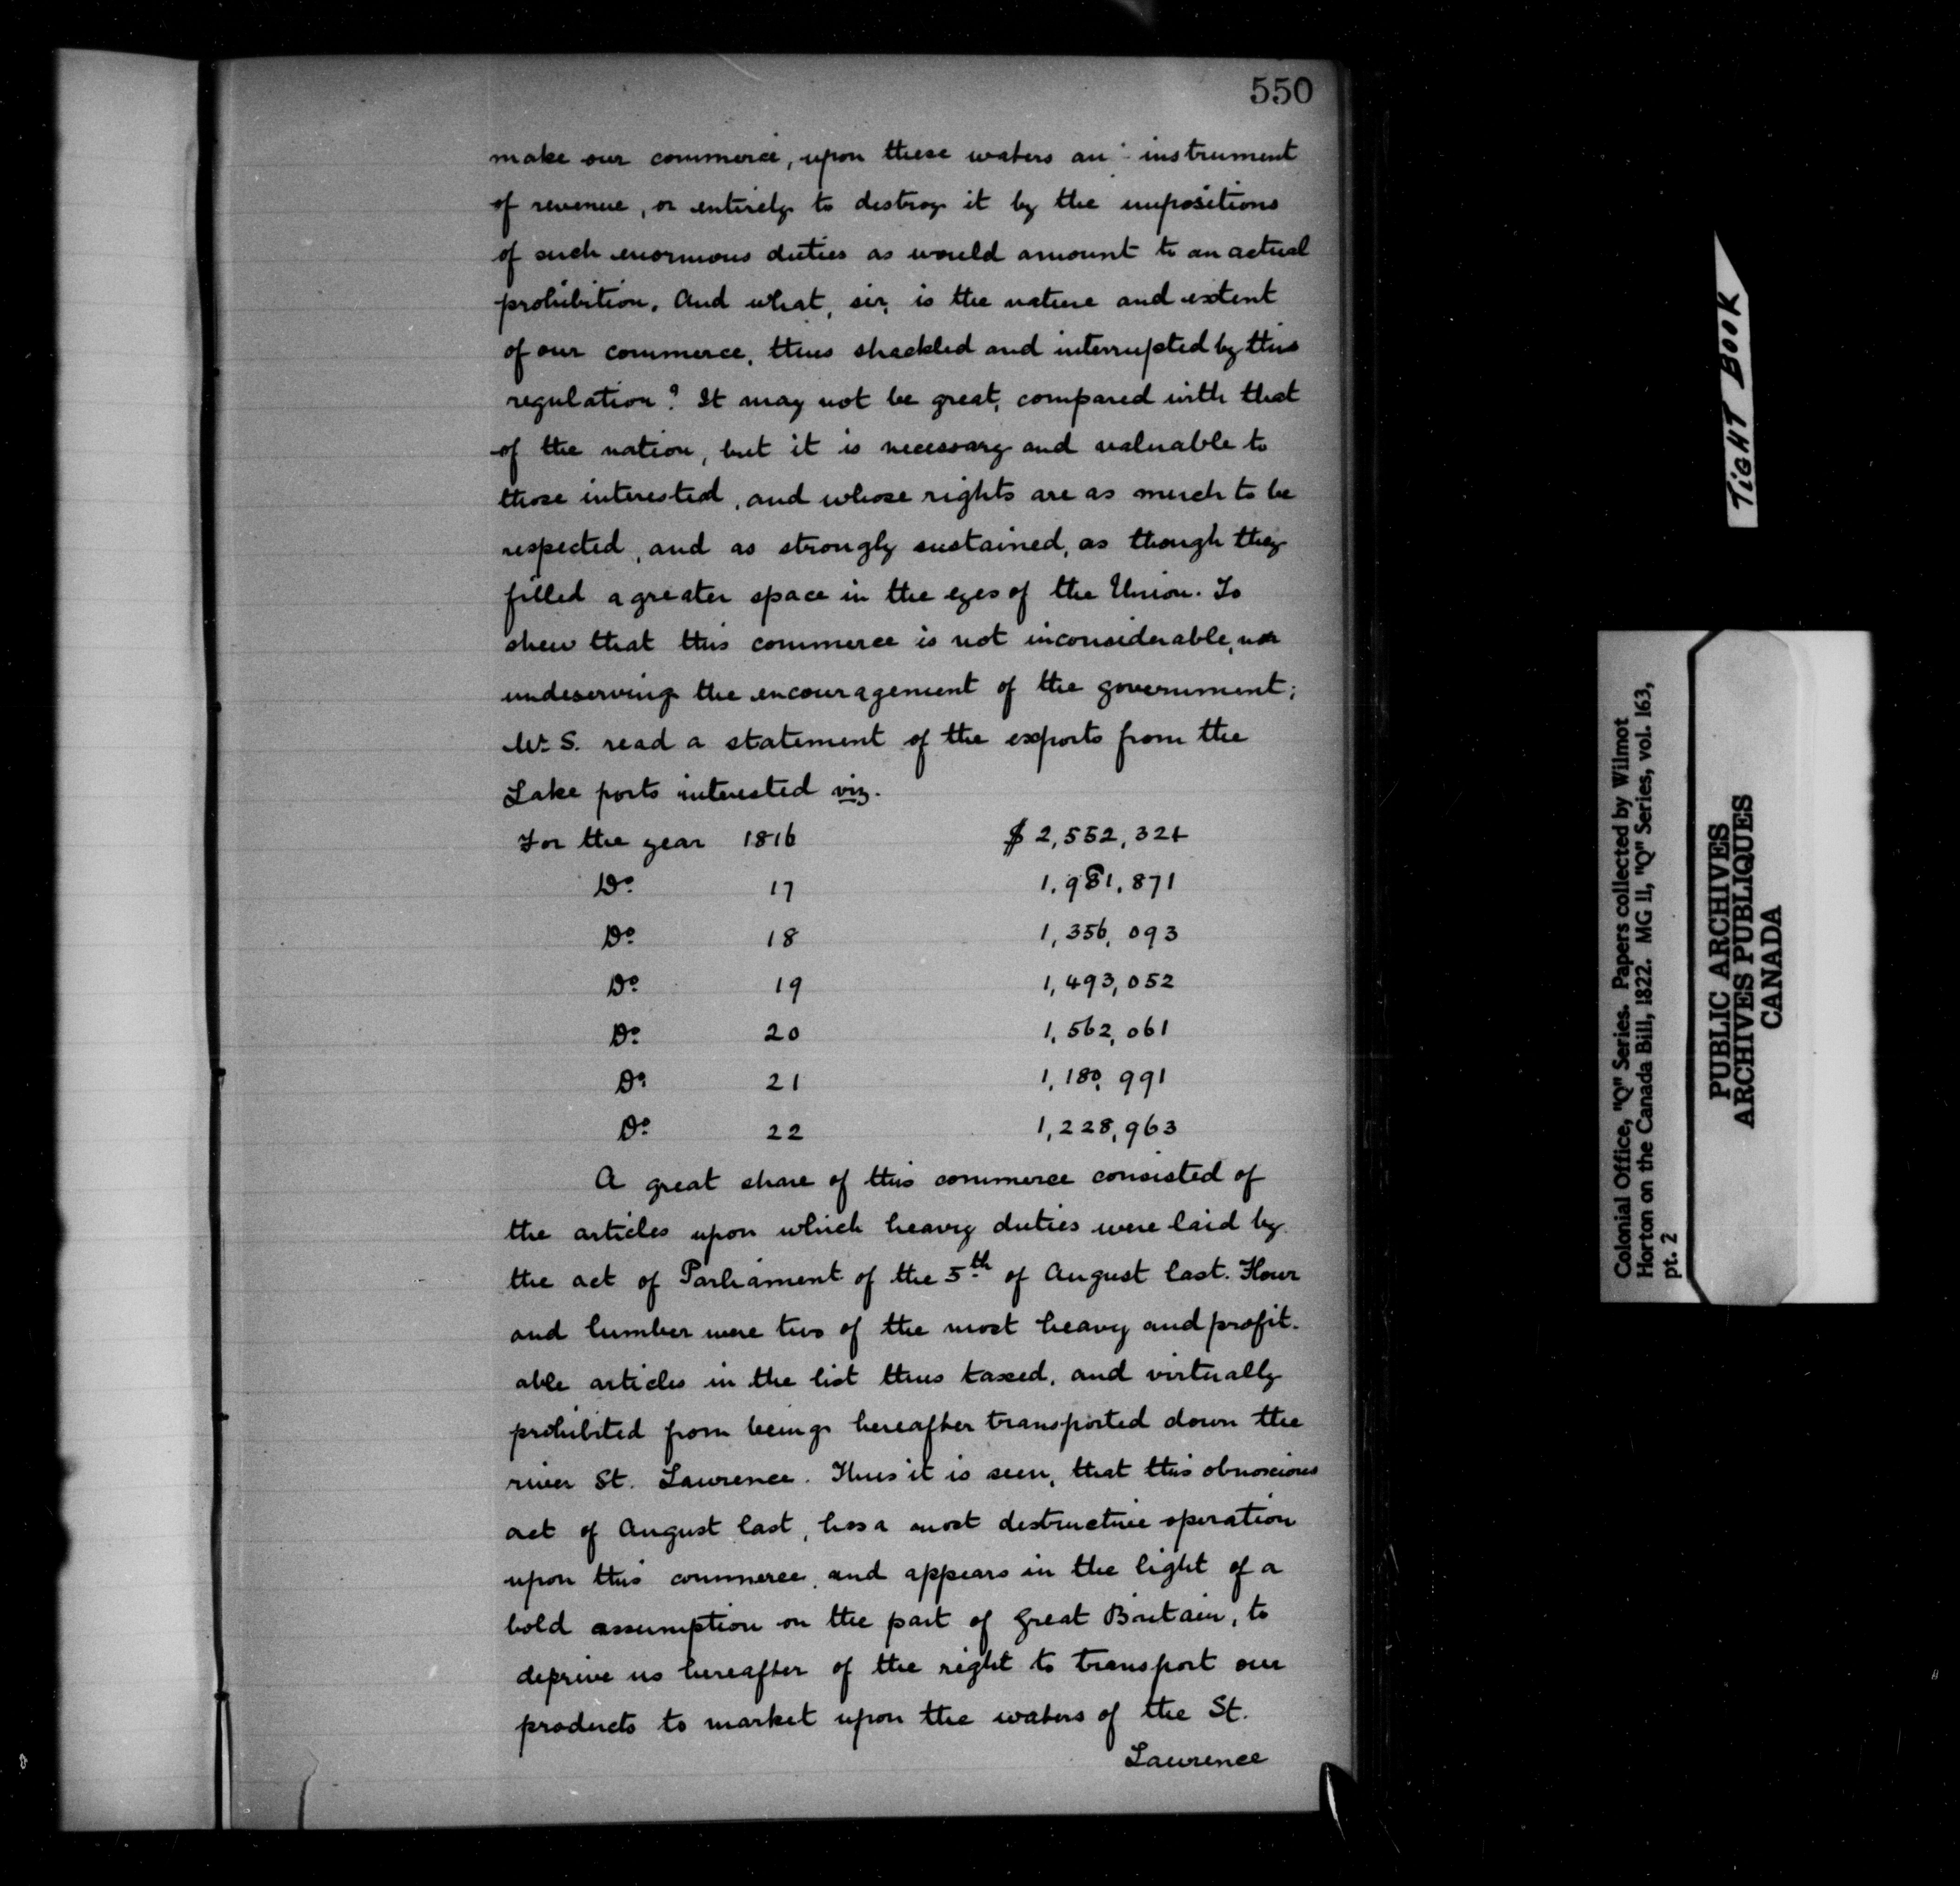 550
make our commerce, upon these waters an instrument
of revenue, or entirely to destroy it by the impositions
of such enormous duties as would amount to an actual
prohibition. And what, sir, is the nature and extent
of our commerce, thus shackled and interrupted by this
regulation? It may not be great, compared with that
of the nation, but it is necessary and valuable to
those interested, and whose rights are as much to be
respected, and as strongly sustained, as though they
filled a greater space in the eyes of the Union. To
shew that this commerce is not inconsiderable, nor
undeserving the encouragement of the government;
Mr. S. read a statement of the exports from the
Lake ports interested viz.
For the year 1816 $ 2,552,321
Do. 17 1,981,871
Do. 18 1,356,093
Do. 19 1,493,052
Do. 20 1,562,061
Do. 21 1,180,991
Do. 22 1,228,963
A great share of this commerce consisted of
the articles upon which heavy duties were laid by
the act of Parliament of the 5th of August last. Flour
and lumber were two of the most heavy and profit-
able articles in the list thus taxed, and virtually
prohibited from being hereafter transported down the
river St. Lawrence. Thus it is seen, that this obnoxious
act of August last, has a most destructive operation
upon this commerce, and appears in the light of a
bold assumption on the part of Great Britain, to
deprive us hereafter of the right to transport our
products to market upon the waters of the St.
Lawrence
TIGHT BOOK
Colonial Office, "Q" Series. Papers collected by Wilmot
Horton on the Canada Bill, 1822. MG 11, "Q" Series, vol. 163,
pt. 2
PUBLIC ARCHIVES
ARCHIVES PUBLIQUES
CANADA